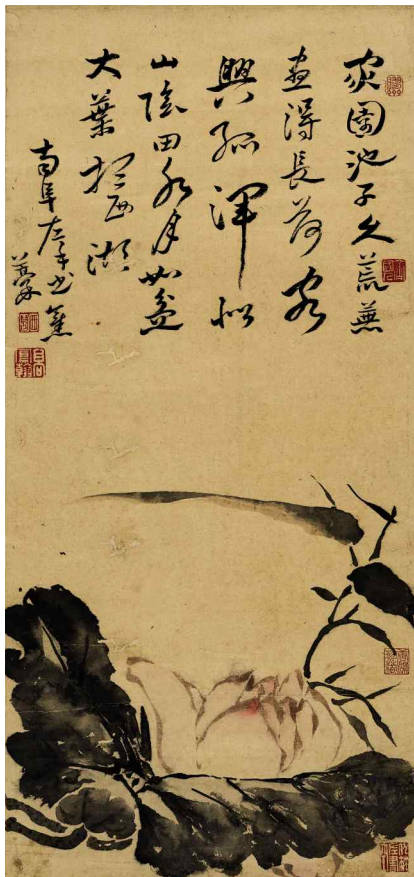 家園池子久荒蕪
畫得長荷寄
興孤渾似
山陰田水月如盆
大葉西湖
南阜左手書舊
藁